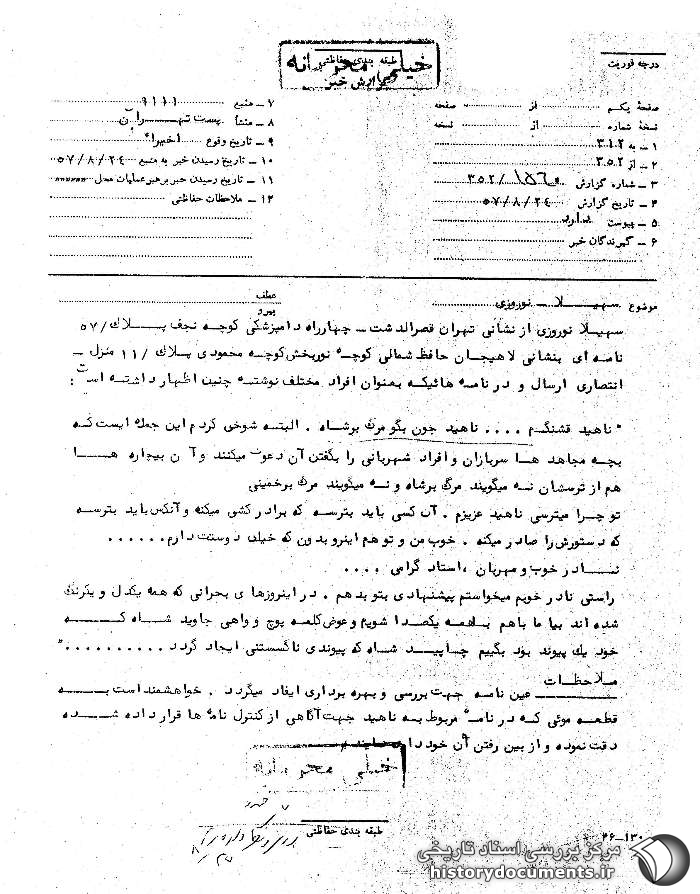 درجه فوریت
طبقه بندی حفاظتی
خیلی محرمانه
گزارش خبر
صفحهٔ یکم ........ از ........ صفحه
نسخهٔ شماره ........ از ........ نسخه
۱ - به ۳۱۲
۲ - از ۳۵۲
۳ - شماره گزارش ۳۵۲/۱۵۶۰
۴ - تاریخ گزارش ۵۷/۸/۲۴
۵ - پیوست دارد
۶ - گیرندگان خبر
۷ - منبع ۹۱۱۱
۸ - منشأ پست تهران
۹ - تاریخ وقوع اخیراً
۱۰ - تاریخ رسیدن خبر به منبع ۵۷/۸/۲۴
۱۱ - تاریخ رسیدن خبر برهبر عملیات محل
۱۲ - ملاحظات حفاظتی
موضوع سهیلا - نوروزی
عطف
پیرو
سهیلا نوروزی از نشانی تهران قصرالدشت - چهارراه دامپزشکی کوچه نجف پلاک/۵۷
نامه ای بنشانی لاهیجان حافظ شمالی کوچه نوربخش کوچه محمودی پلاک /۱۱ منزل -
انتصاری ارسال و در نامه هائیکه بعنوان افراد مختلف نوشته چنین اظهار داشته است :
" ناهید قشنگم .... ناهید جون بگو مرگ برشاه . البته شوخی کردم این جمله ایست که
بچه مجاهد ها سربازان و افراد شهربانی را بگفتن آن دعوت میکنند و آن بیچاره هـا
هم از ترسشان نه میگویند مرگ برشاه و نه میگویند مرگ برخمینی
تو چرا میترسی ناهید عزیزم . آن کسی باید بترسه که برادر کشی میکنه و آنکس باید بترسه
که دستورش را صادر میکنه . خوب من و تو هم اینرو بدون که خیلی دوستت دارم......
نـادر خوب و مهربان ، استاد گرامی ....
راستی نادر خوبم میخواستم پیشنهادی بتو بدهم . در اینروزهای بحرانی که همه یکدل و یکرنگ
شده اند بیا ما باهم باهمه یکصدا شویم و عوض کلمه پوچ و واهی جاوید شاه کـه
خود یک پیوند بود بگییم جـاپیـد شاه که پیوندی ناگسستنی ایجاد گردد .........."
ملاحظـات
عین نامه جهت بررسی و بهره برداری ایفاد میگردد . خواهشمند است بـه
قطعه موئی که در نامهٔ مربوط به ناهید جهت آگاهی از کنترل نامه ها قرار داده شـده
دقت نموده و از بین رفتن آن خودداری نمایند .
خیلی محرمانه
طبقه بندی حفاظتی
۲۶-۱۳۰
مرکز بررسی اسناد تاریخی
historydocuments.ir